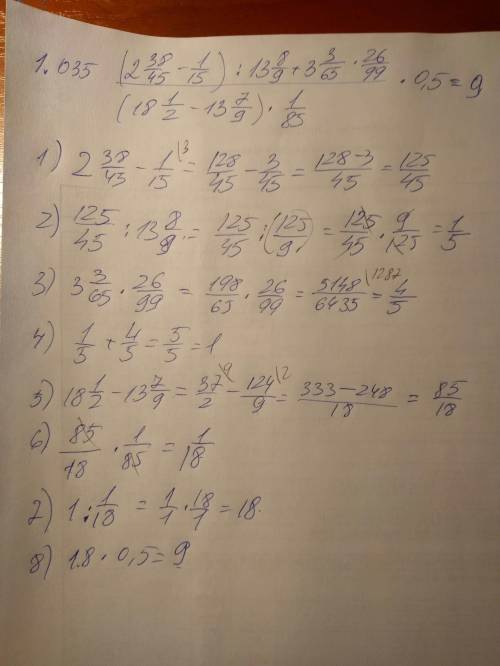 1.035 (2 38/45 - 1/15) : 13 8/9 + 3 3/65 · 26/99
(18 1/2 - 13 7/9) · 1/85 · 0,5 = 9
1) 2 38/45 - 1/15 \3 = 128/45 - 3/45 = 128-3/45 = 125/45
2) 125/45 : 13 8/9 = 125/45 : (125/9) = 125/45 · 9/125 = 1/5
3) 3 3/65 · 26/99 = 198/65 · 26/99 = 5148/6435 \1287 = 4/5
4) 1/5 + 4/5 = 5/5 = 1
5) 18 1/2 - 13 7/9 = 37/2 \9 - 124/9 \2 = 333-248/18 = 85/18
6) 85/18 · 1/85 = 1/18
7) 1 : 1/18 = 1/1 · 18/1 = 18.
8) 18 · 0,5 = 9